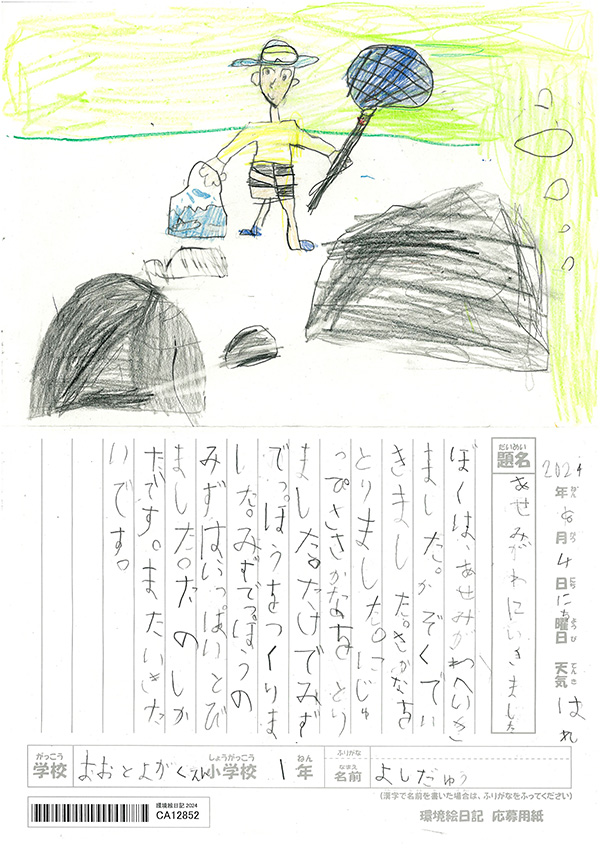 2024年8月4日にち曜日 天気 はれ
ねん がつ にち ようび てんき
だいめい
題名
あせみがわにいきました
ぼくは、あせみがわへいき
ました。かぞくでい
きました。さかなを
とりました。にじゅ
っぴきさかなをとり
ました。たけでみず
でっぽうをつくりま
した。みずでっぽうの
みずはいっぱいとび
ました。たのしか
たです。またいきた
いです。
がっこう
学校
おおとよがくえん
しょうがっこう
小学校
1
ねん
年
ふりがな
なまえ
名前
よしだゅう
(漢字で名前を書いた場合は、ふりがなをふってください)
環境絵日記 2024
CA12852
環境絵日記 応募用紙